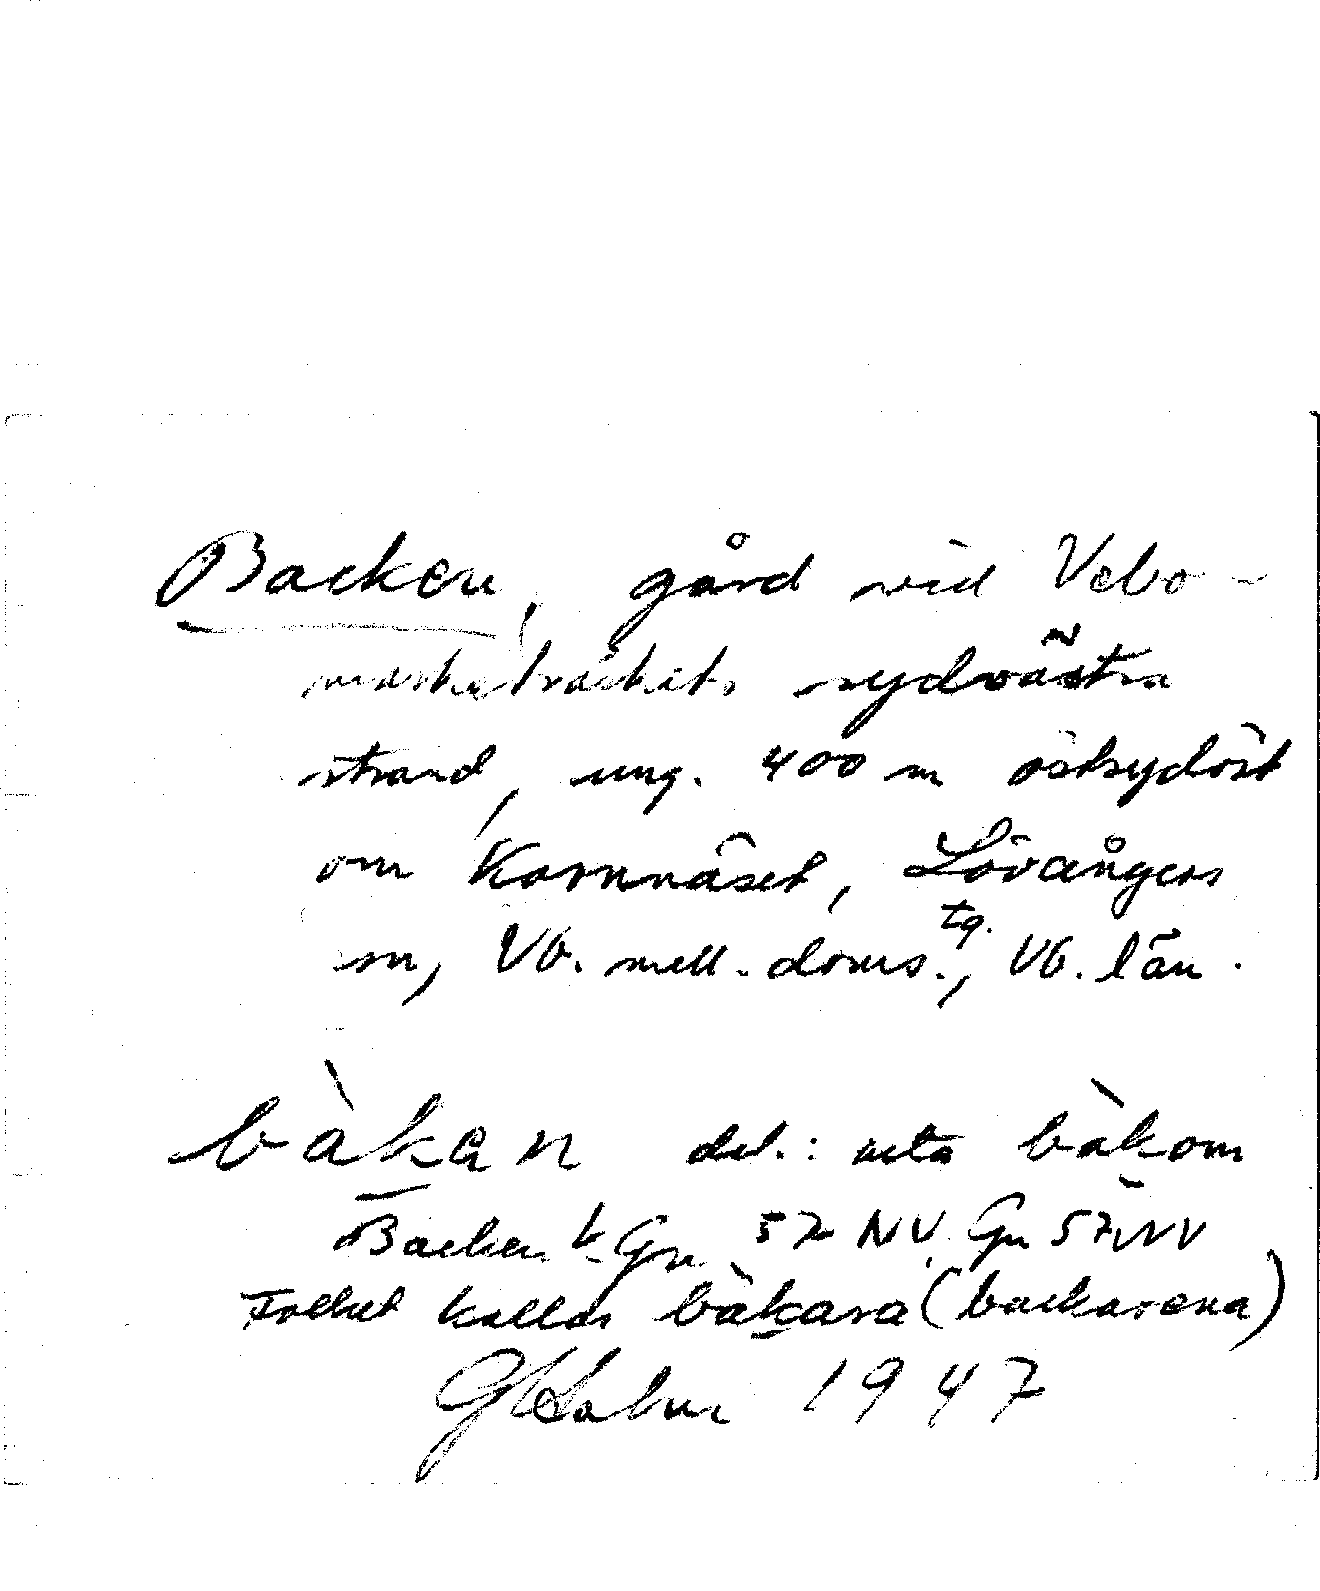 Backen, gård vid Vebo-
marksträskets sydvästra
strand, ung. 400 m ostsydöst
om Kornnäset, Lövångers
sn, Vb. mell. doms.tg., Vb. län.
bàkan det.: uta bàkom
Backen k Gn 57 NV. Gn 57NV
Folket kallas bàkara (backarena)
G Holm 1947